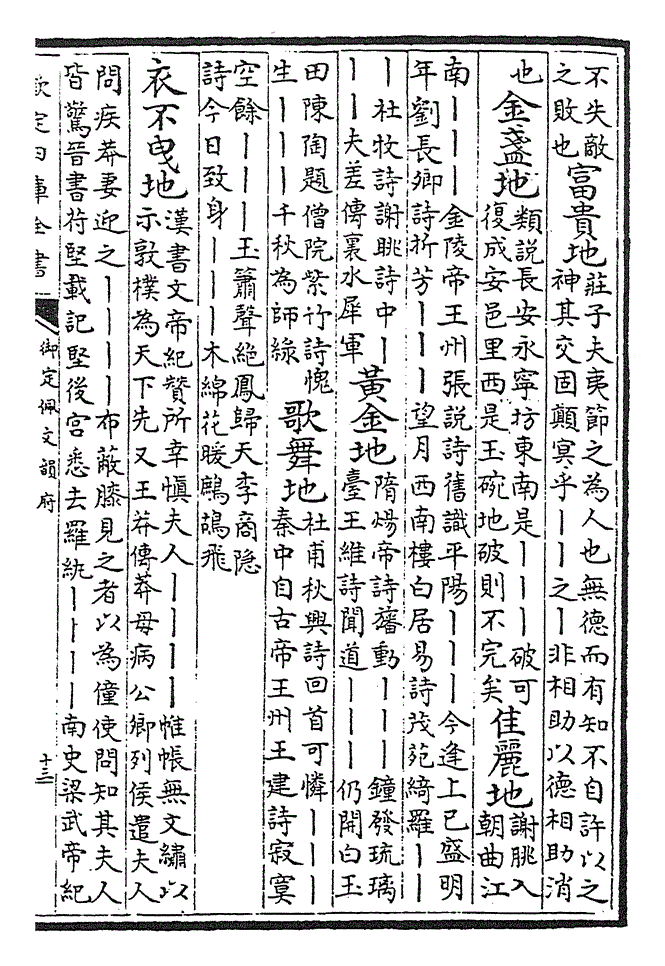 不失敵
之敗也
富貴地
莊子夫夷節之為人也無德而有知不自許以之
神其交固顛冥乎丨丨之丨非相助以德相助消
也
金盞地
類說長安永寧坊東南是丨丨丨破可
復成安邑里西是玉碗地破則不完矣
佳麗地
謝脁入
朝曲江
南丨丨丨金陵帝王州張說詩舊識平陽丨丨丨今逢上巳盛明
年劉長卿詩折芳丨丨丨望月西南樓白居易詩茂苑綺羅丨丨
丨杜牧詩謝眺詩中丨
丨丨夫差傳裏水犀軍
黃金地
隋煬帝詩旛動丨丨丨鐘發琉璃
臺王維詩聞道丨丨丨仍開白玉
田陳陶題僧院紫竹詩愧
生丨丨丨千秋為師綠
歌舞地
杜甫秋興詩回首可憐丨丨丨
秦中自古帝王州王建詩寂寞
空餘丨丨丨玉簫聲絕鳳歸天李商隱
詩今日致身丨丨丨木綿花暖鷓鴣飛
衣不曳地
漢書文帝紀贊所幸慎夫人丨丨丨丨帷帳無文繡以
示敦樸為天下先又王莽傳莽母病公卿列侯遣夫人
問疾莽妻迎之丨丨丨丨布蔽膝見之者以為僮使問知其夫人
皆驚晉書苻堅載記堅後宮悉去羅紈丨丨丨丨南史梁武帝紀
欽定四庫全書
御定佩文韻府
十三